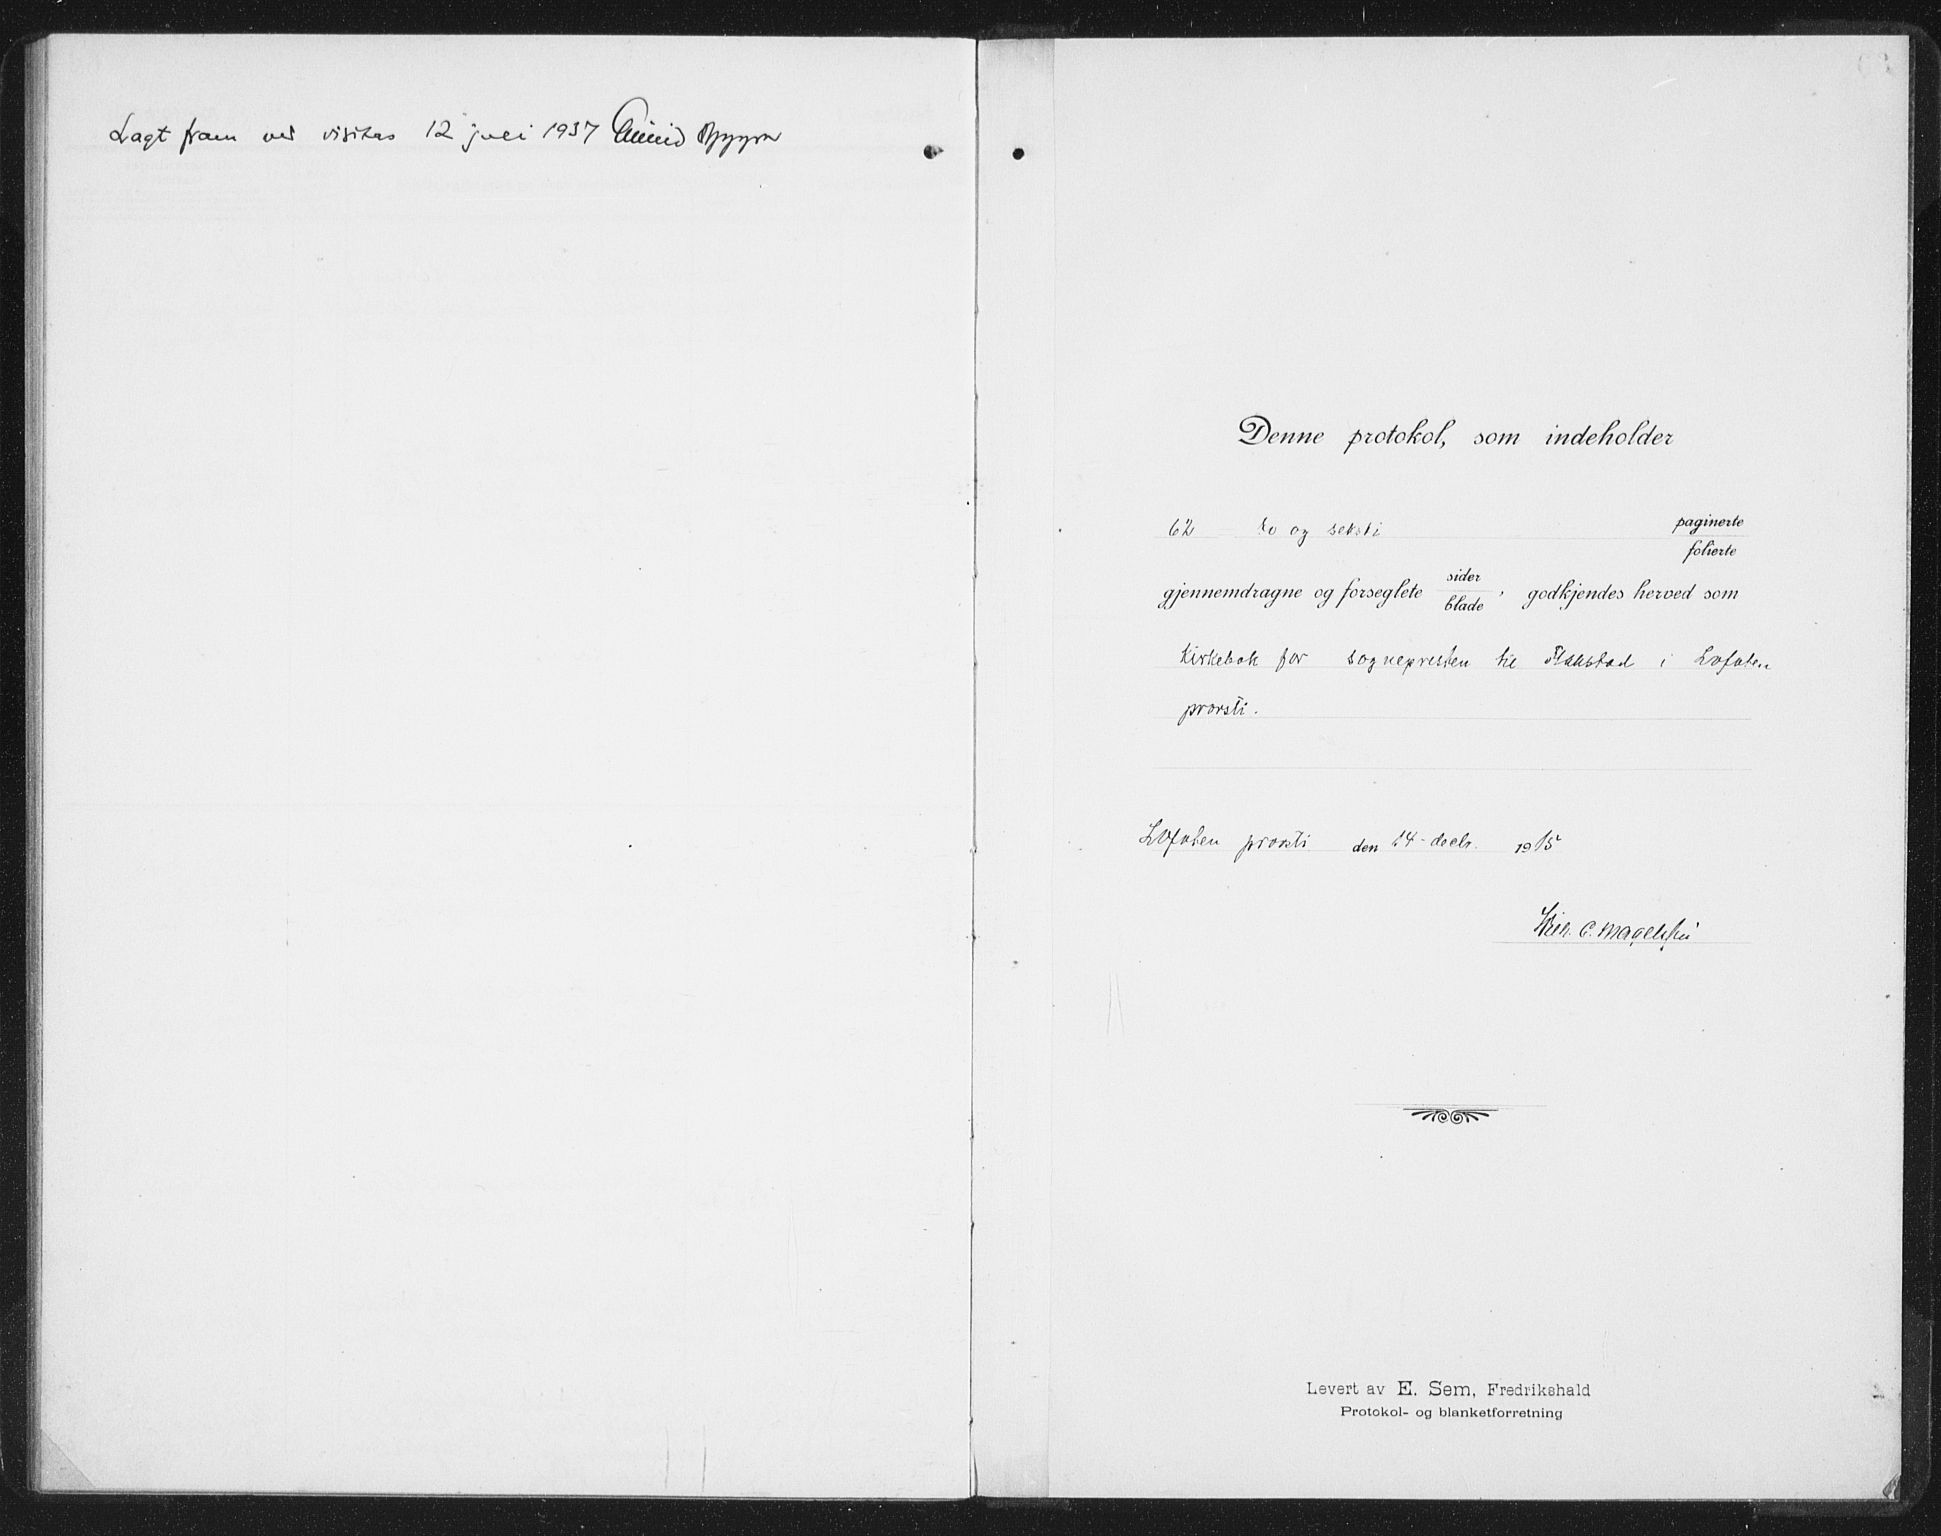 Lagt fram ved visitas 12 juli 1937 Eivind Berggrav
Denne protokol, som indeholder
62 to og seksti paginerte
folierte
gjennemdragne og forseglete sider
blade, godkjendes herved som
kirkebok for sognepresten til Flakstad i Lofoten
prorsti.
Lofoten prosti den 14 - decbr. 1915
Levert av E. Sem, Fredrikshald
Protokol- og blanketforretning